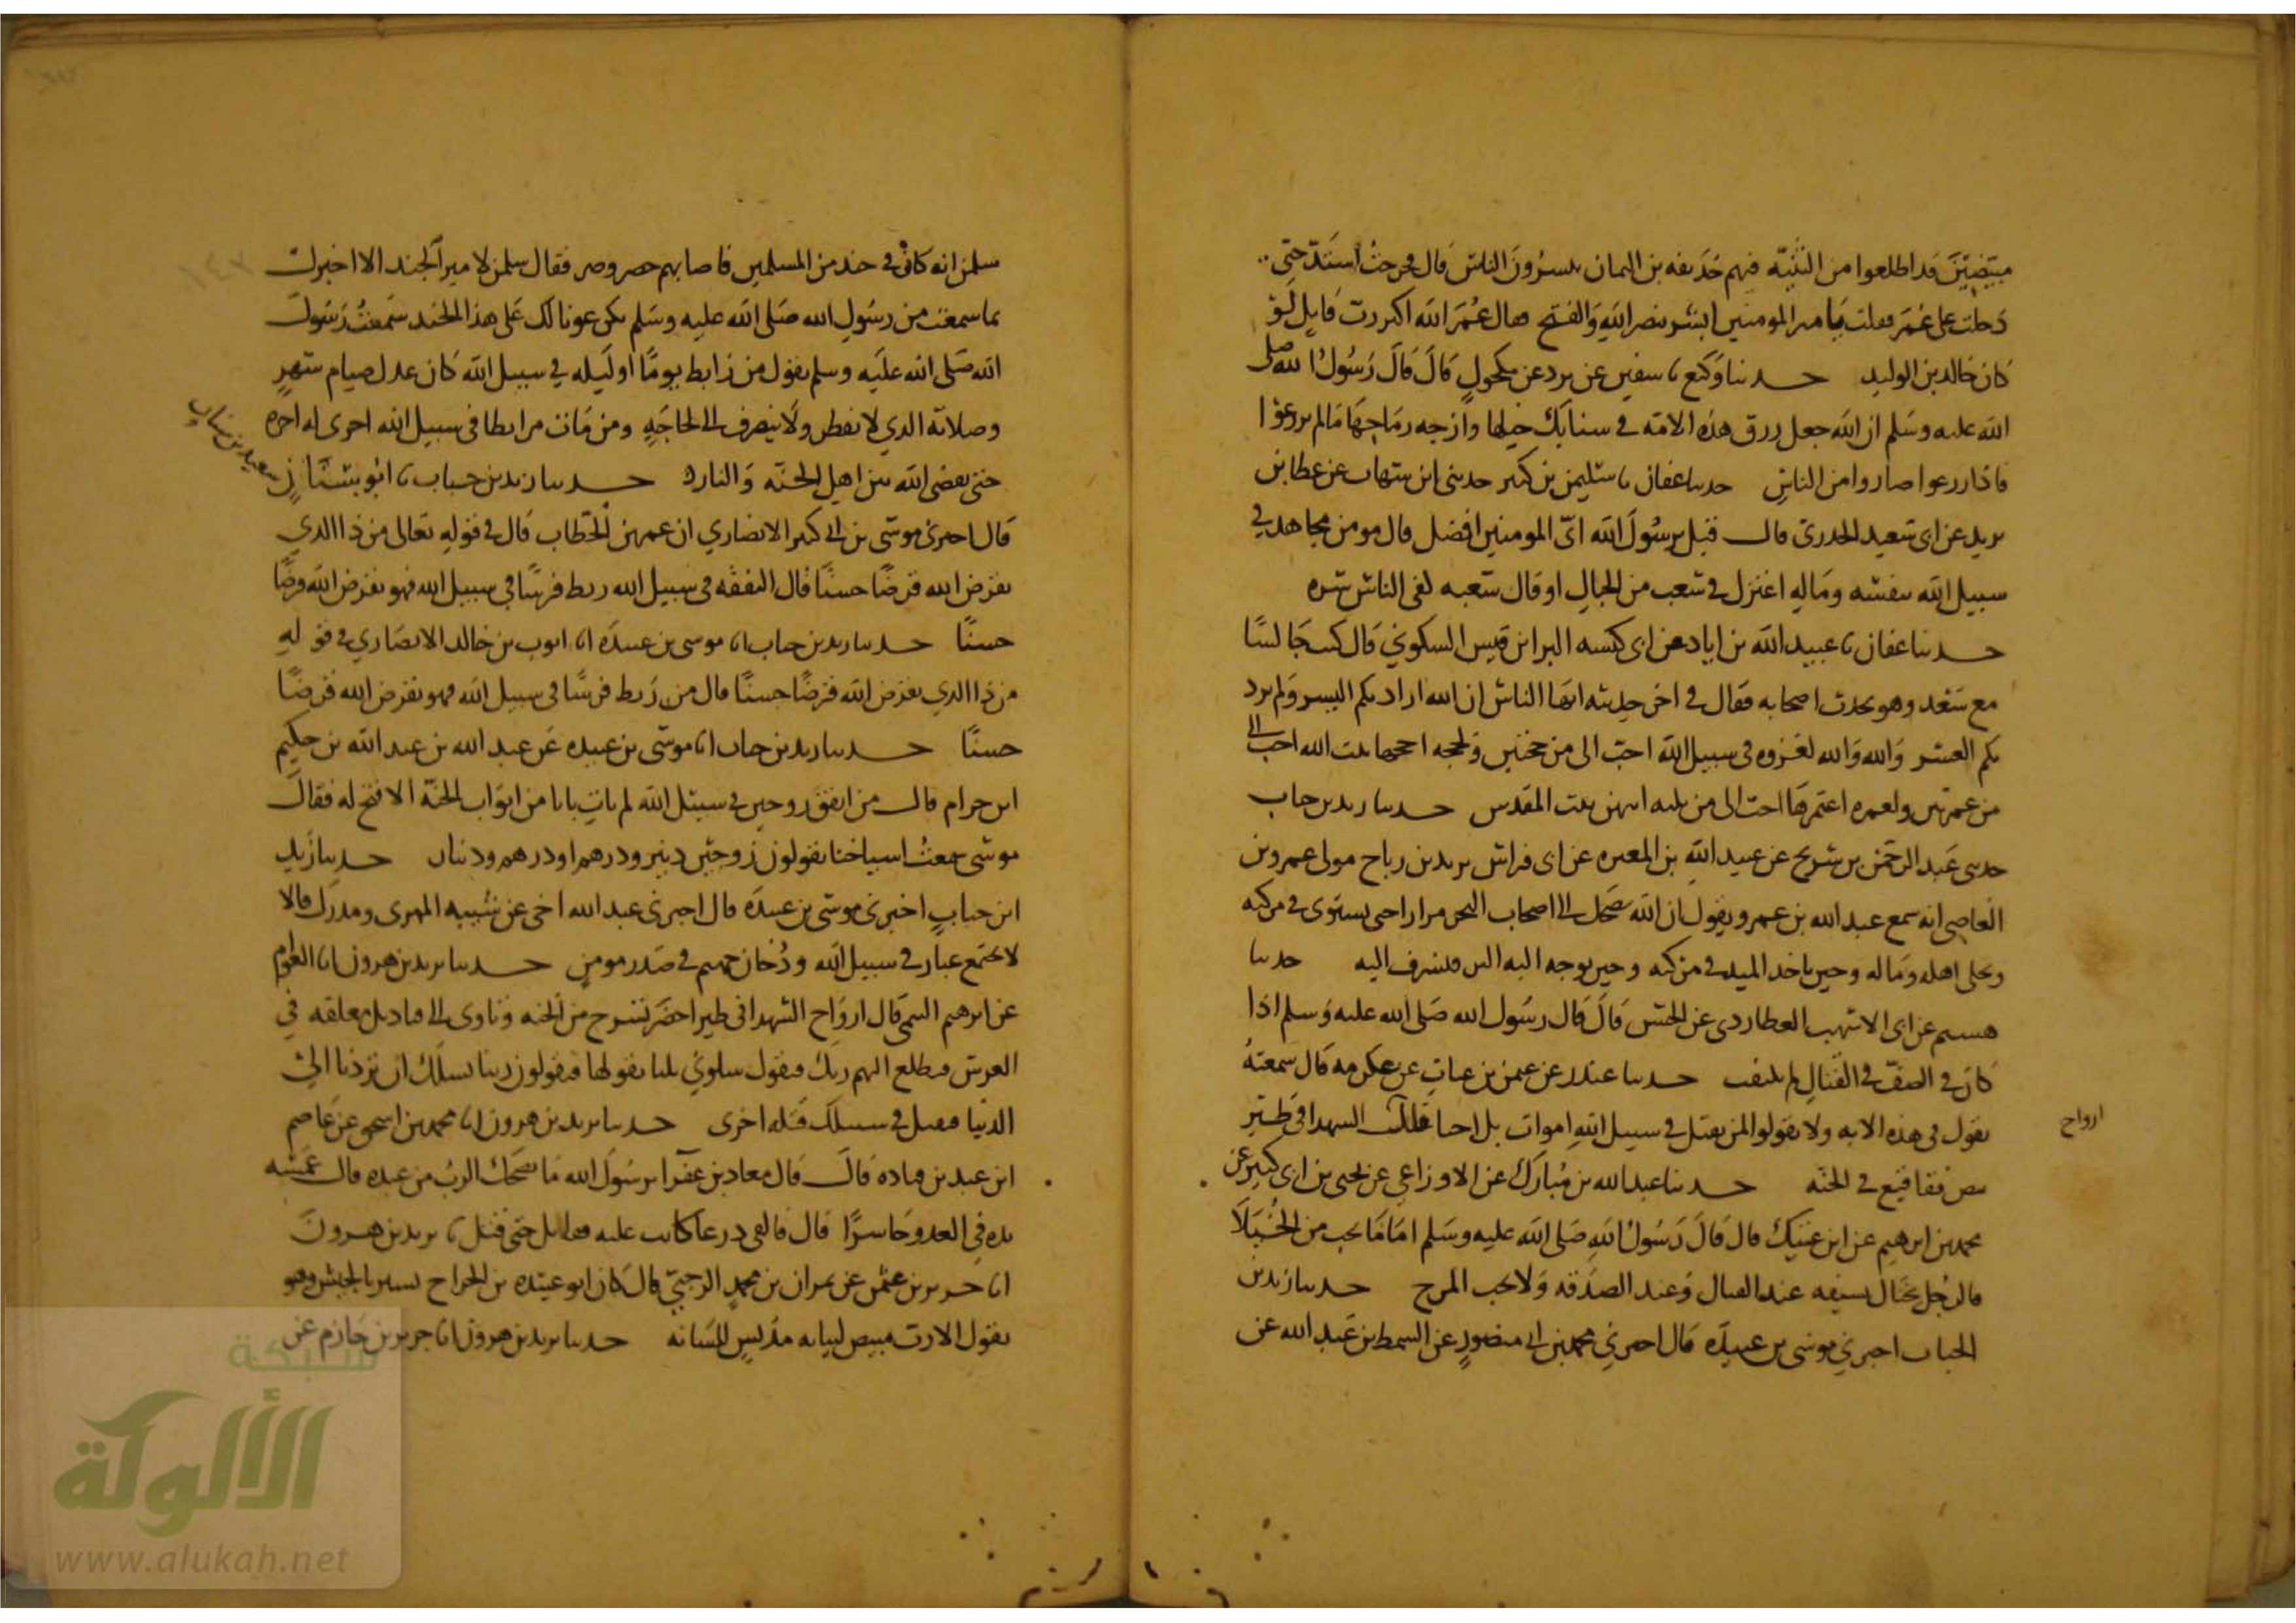 مبيضين قد اطلعوا من الثنيه فيهم حذيفه بن اليمان يبشرون الناس قال فخرجت اشتد حتى
دخلت على عمر فقلت يا امير المومنين ابشر بنصر الله والفتح فقال عمر الله اكبر رب قايل لو
كان خالد بن الوليد حدثنا وكيع نا سفين عن برد عن مكحول قال قال رسول الله صلى
الله عليه وسلم ان الله جعل رزق هذه الامه في سنابك خيلها وازجه رماحها مالم يزرعوا
فاذا زرعوا صاروا من الناس حدثنا عفان نا سليمن بن كثير حدثني ابن شهاب عن عطا بن
يزيد عن ابي سعيد الخدري قال قيل يرسول الله اي المومنين افضل قال مومن مجاهد في
سبيل الله بنفسه وماله اعتزل في شعب من الجبال او قال شعبه لفي الناس شره
حدثنا عفان نا عبيد الله بن اياد عن ابي كبشه البرا بن قيس السكوني قال كنت جالسا
مع سعد وهو يحدث اصحابه فقال في اخر حديثه ايها الناس ان الله اراد بكم اليسر ولم يرد
بكم العسر والله والله لغزوه في سبيل الله احب الي من حجتين ولحجه احجها بيت الله احب الي
من عمرتين ولعمره اعتمرها احب الي من ثلثه اتيهن بيت المقدس حدثنا زيد بن حباب
حدثني عبد الرحمن بن شريح عن عبيد الله بن المغيره عن ابي فراش يزيد بن رباح مولى عمرو بن
العاصي انه سمع عبد الله بن عمرو يقول ان الله يضحك الى اصحاب البحر مرارا حين يستوي في مركبه
ويخلي اهله وماله وحين ياخذ الميد في مركبه وحين يوجه اليه البر فيشرف اليه حدثنا
هشيم عن ابي الاشهب العطاردي عن الحسن قال قال رسول الله صلى الله عليه وسلم اذا
كان في الصف في القتال لم يلتفت حدثنا غندر عن عثمن بن غياث عن عكرمه قال سمعته
يقول في هذه الايه ولا تقولوا لمن يقتل في سبيل الله اموات بل احيا قال الشهدا في طير
ارواح
بيض فقاقيع في الجنه حدثنا عبد الله بن مبارك عن الاوزاعي عن يحيى بن ابي كثير عن
محمد بن ابرهيم عن ابن عتيك قال قال رسول الله صلى الله عليه وسلم اما ما يحب من الخيلا
فالرجل يختال بسيفه عند القتال وعند الصدقه ولا يحب المرح حدثنا زيد بن
الحباب اخبرني موسى بن عبيده قال اخبرني محمد بن ابي منصور عن السمط بن عبد الله عن
سلمن انه كان في جند من المسلمين فاصابهم حصر وضر فقال سلمن لامير الجند الا اخبرك
بما سمعت من رسول الله صلى الله عليه وسلم يكن عونا لك على هذا الجند سمعت رسول
الله صلى الله عليه وسلم يقول من رابط يوما او ليله في سبيل الله كان عدل صيام شهر
وصلاته الذي لا يفطر ولا ينصرف الا لحاجه ومن مات مرابطا في سبيل الله اجري له اجره
حتى يقضي الله بين اهل الجنه والنار حدثنا زيد بن حباب نا ابو سنان
سعيد بن سنان
قال اخبرني موسى بن ابي كثير الانصاري ان عمر بن الخطاب قال في قوله تعالى من ذا الذي
يقرض الله قرضا حسنا قال النفقه في سبيل الله ربط فرسا في سبيل الله فهو يقرض الله قرضا
حسنا حدثنا زيد بن حباب انا موسى بن عبيده انا ايوب بن خالد الانصاري في قوله
من ذا الذي يقرض الله قرضا حسنا قال من ربط فرسا في سبيل الله فهو يقرض الله قرضا
حسنا حدثنا زيد بن حباب انا موسى بن عبيده عن عبد الله بن عبد الله بن حكيم
ابن حزام قال من انفق زوجين في سبيل الله لم يات بابا من ابواب الجنه الا فتح له فقال
موسى سمعت اشياخنا يقولون زوجين دينر ودرهم او درهم ودينار حدثنا زيد
ابن حباب اخبرني موسى بن عبيده قال اخبرني عبد الله اخي عن شيبه المهري ومدرك قالا
لا يجتمع غبار في سبيل الله ودخان جهنم في صدر مومن حدثنا يزيد بن هرون انا العوام
عن ابرهيم التيمي قال ارواح الشهدا في طير اخضر تسرح من الجنه وتاوي الى قناديل معلقه في
العرش فيطلع اليهم ربك فيقول سلوني ثلثا يقولها فيقولون ربنا نسلك ان تردنا الى
الدنيا فنقتل في سبيلك قتله اخرى حدثنا يزيد بن هرون انا محمد بن اسحق عن عاصم
ابن عمر بن قتاده قال قال معاذ بن عفرا يرسول الله ما يضحك الرب من عبده قال غمسه
يده في العدو حاسرا قال فالقى درعا كانت عليه فقاتل حتى قتل نا يزيد بن هرون
انا حريز بن عثمن عن نمران بن محمد الرحبي قال كان ابو عبيده بن الجراح يسير بالجيش وهو
يقول الا رب مبيض لثيابه مدنس للسانه حدثنا يزيد بن هرون انا جرير بن حازم عن
شبكة
الألوكة
www.alukah.net